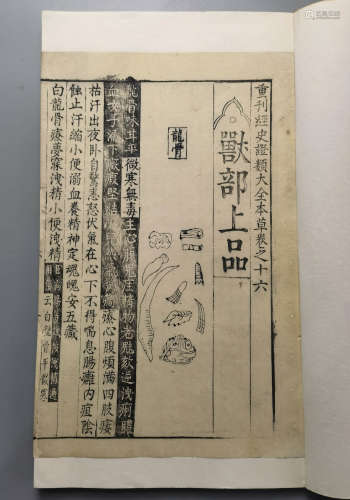 重刊經史證類大全本草卷之十六
獸部上品
龍骨
龍骨味甘平微寒無毒主心腹鬼疰精物老魅欬逆洩痢膿
血女子漏下癥瘕堅結療心腹煩滿四肢痿
枯汗出夜卧自驚恚怒伏氣在心下不得喘息腸癰內疽陰
蝕止汗縮小便溺血養精神定魂魄安五藏
白龍骨療夢寐洩精小便洩精
云白龍骨平微寒